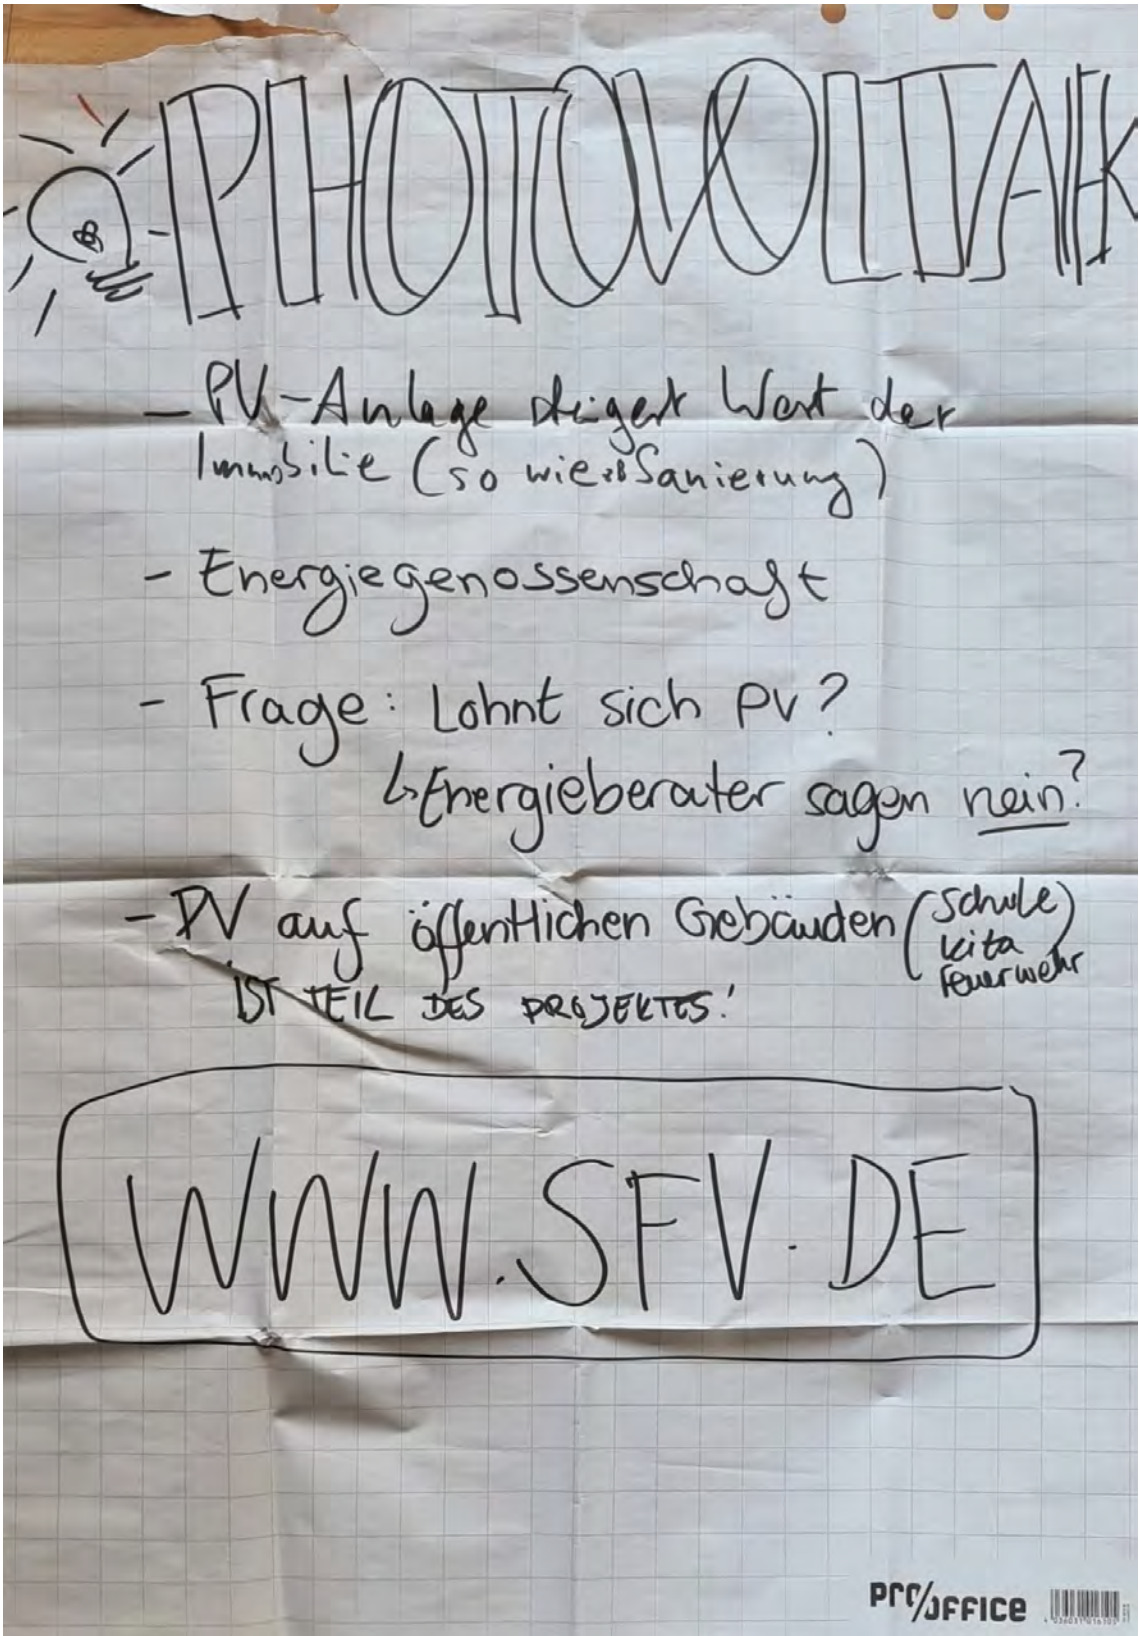 PHOTOVOLTAIK
- PV-Anlage steigert Wert der
Immobilie (so wie Sanierung)
- Energiegenossenschaft
- Frage: Lohnt sich PV?
↳ Energieberater sagen nein?
- PV auf öffentlichen Gebäuden (Schule
Kita
Feuerwehr)
IST TEIL DES PROJEKTES!
WWW.SFV.DE
Pro/office